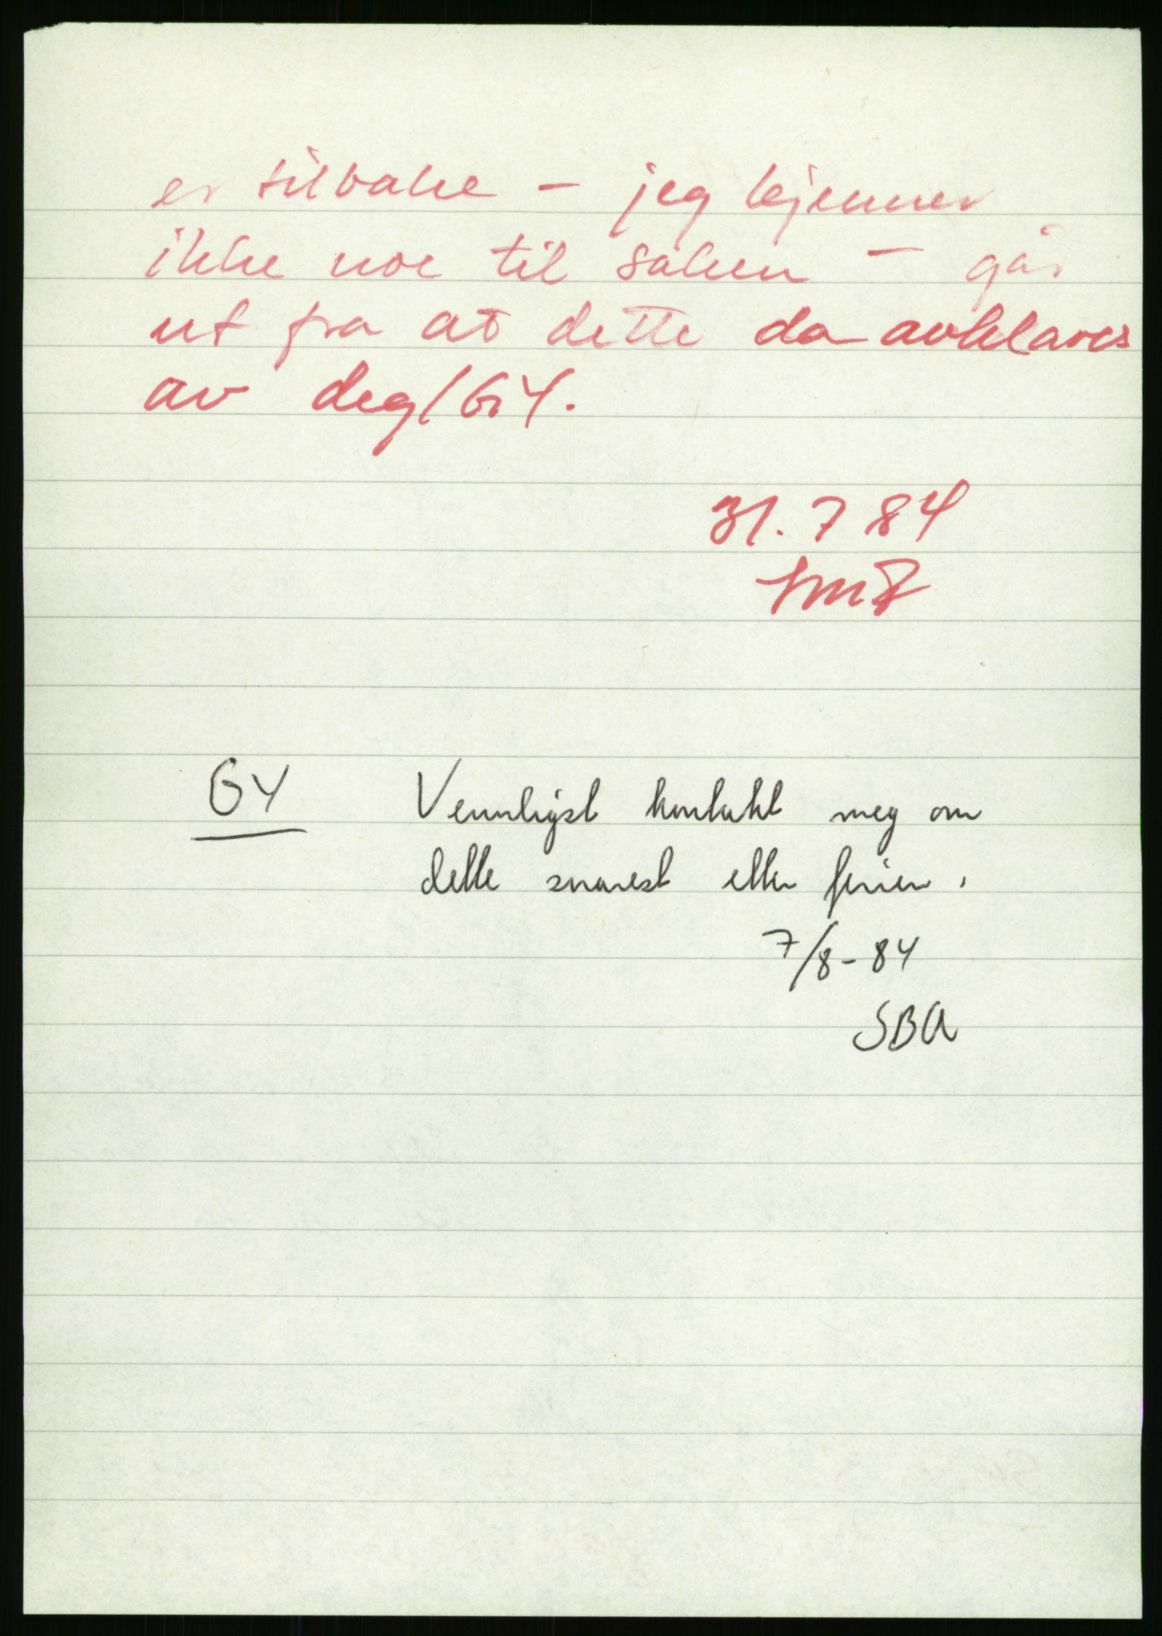 er tilbake – jeg kjenner
ikke noe til saken – går
ut fra at dette da avklares
av deg/GY.
31.7 84
GY Vennligst kontakt meg om
dette snarest etter ferien.
7/8-84
SBA